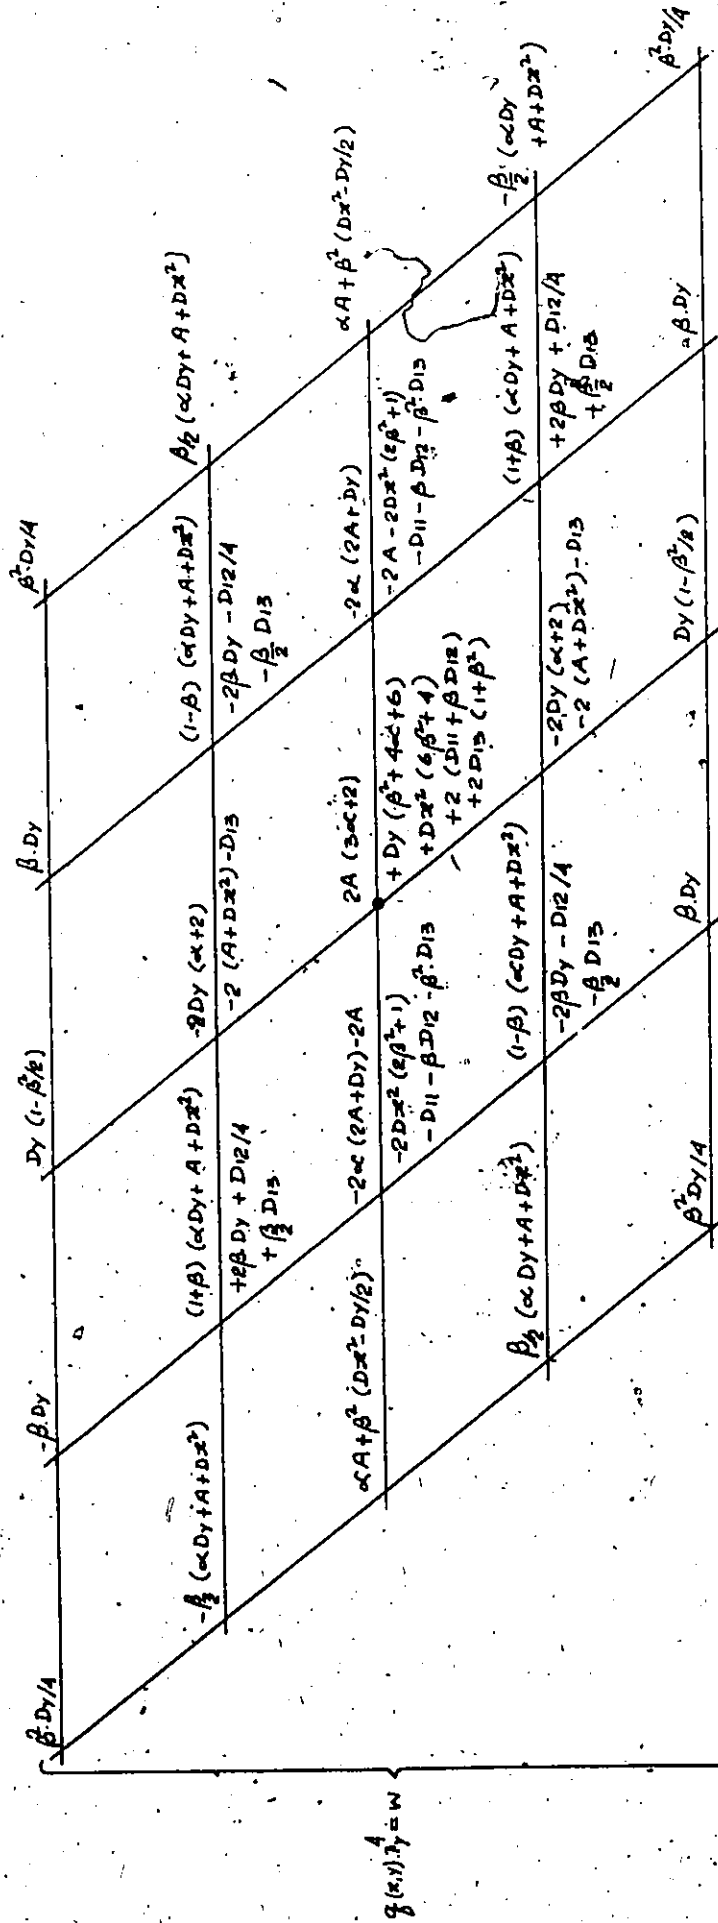 β²·Dy/4
-β·Dy
Dy (1-β²/2)
β·Dy
β²·Dy/4
-β/2 (αDy+A+Dx²)
(1+β) (αDy+A+Dx²)
+2βDy + D12/4
+ β/2 D13
-2Dy (α+2)
-2 (A+Dx²)-D13
(1-β) (αDy+A+Dx²)
-2βDy - D12/4
-β/2 D13
β/2 (αDy+A+Dx²)
q(x,y).λy⁴ = W
αA+β² (Dx²-Dy/2)
-2α (2A+Dy)-2A
-2Dx² (2β²+1)
-D11-β·D12-β²·D13
2A (3α+2)
+ Dy (β²+4α+6)
+Dx² (6β²+4)
+2 (D11+βD12)
+2D13 (1+β²)
-2α (2A+Dy)
-2A-2Dx² (2β²+1)
-D11-βD12-β²·D13
αA+β² (Dx²-Dy/2)
β/2 (αDy+A+Dx²)
(1-β) (αDy+A+Dx²)
-2βDy-D12/4
-β/2 D13
-2Dy (α+2)
-2 (A+Dx²)-D13
(1+β) (αDy+A+Dx²)
+2βDy+D12/4
+β/2 D13
-β/2 (αDy
+A+Dx²)
β²·Dy/4
β·Dy
Dy (1-β²/2)
-β·Dy
β²·Dy/4